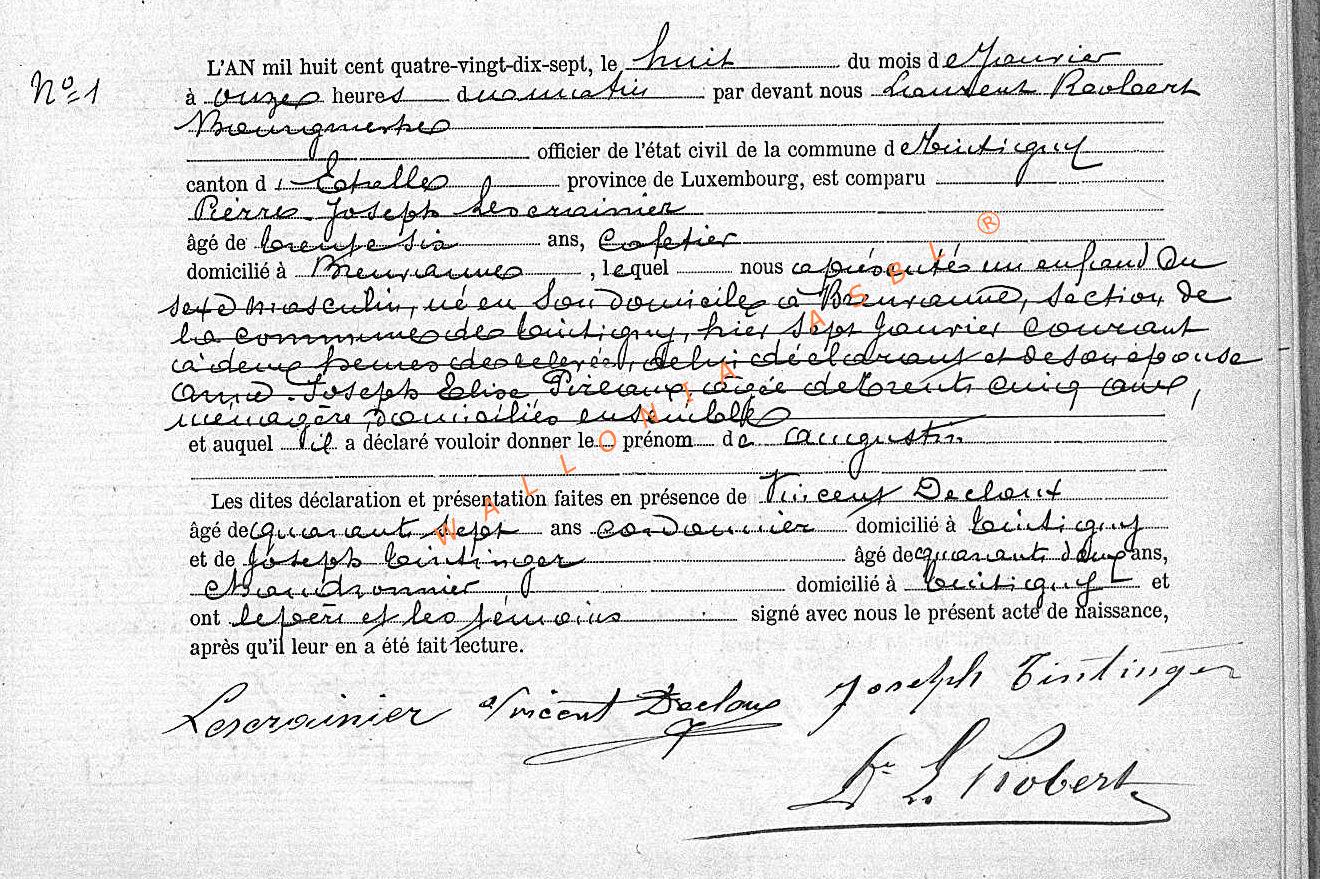 N° 1
L'AN mil huit cent quatre-vingt-dix-sept, le huit du mois de Janvier
à onze heures du matin par devant nous Laurent Robert
Bourgmestre
officier de l'état civil de la commune de Tintigny
canton d'Etalle province de Luxembourg, est comparu
Pierre Joseph Lescrainier
âgé de trente six ans, Cafetier
domicilié à Breuvanne, lequel nous a présenté un enfant du
sexe masculin, né en son domicile à Breuvanne, section de
la commune de Tintigny, hier sept Janvier courant
à deux heures de relevée, de lui déclarant et de son épouse
Anne Joseph Elise Pireaux âgée de trente cinq ans,
ménagère, domiciliés ensemble
et auquel il a déclaré vouloir donner le prénom de Augustin
Les dites déclaration et présentation faites en présence de Vincent Decloux
âgé de quarant sept ans cordonnier domicilié à Tintigny
et de Joseph Tintinger âgé de quarant deux ans,
Chaudronnier domicilié à Tintigny et
ont le père et les témoins signé avec nous le présent acte de naissance,
après qu'il leur en a été fait lecture.
Lescrainier Vincent Decloux Joseph Tintinger
Dr L. Robert
WALLONIA ASBL ®